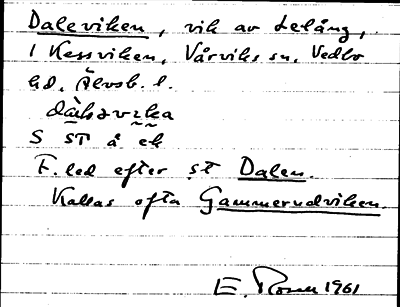 Daleviken, vik av Lelång,
i Kessviken, Vårviks sn, Vedbo
hd, Älvsb. l.
S ST å ek
F. led efter st Dalen.
Kallas ofta Gammerudviken.
E. Rosen 1961